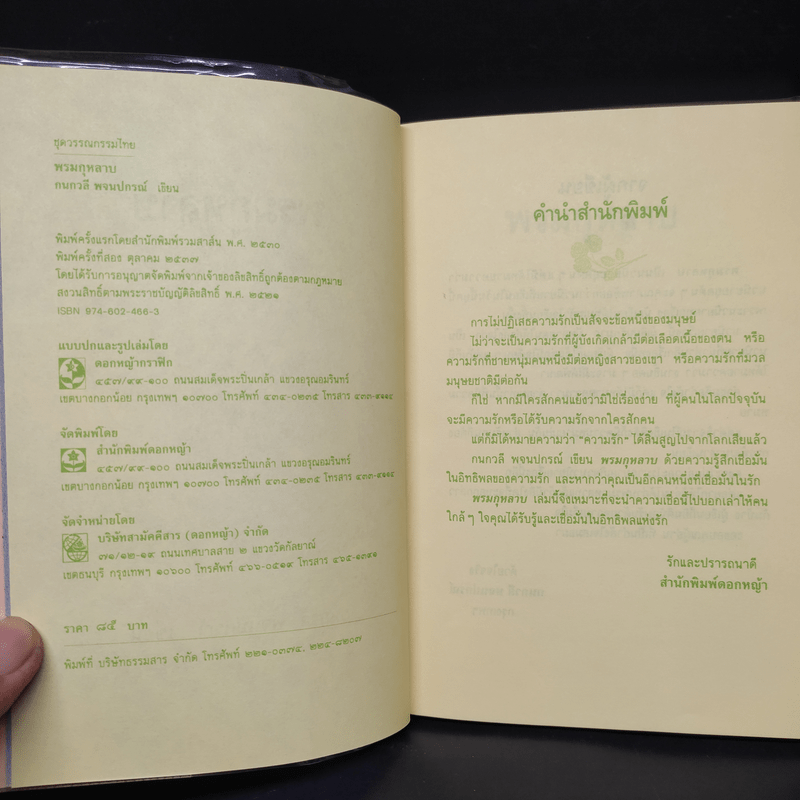 ชุดวรรณกรรมไทย
พรมกุหลาบ
กนกวลี พจนปกรณ์ เขียน
พิมพ์ครั้งแรกโดยสำนักพิมพ์รวมสาส์น พ.ศ. ๒๕๓๐
พิมพ์ครั้งที่สอง ตุลาคม ๒๕๓๗
โดยได้รับการอนุญาตจัดพิมพ์จากเจ้าของลิขสิทธิ์ถูกต้องตามกฎหมาย
สงวนสิทธิ์ตามพระราชบัญญัติลิขสิทธิ์ พ.ศ. ๒๕๒๑
ISBN 974-602-466-3
แบบปกและรูปเล่มโดย
ดอกหญ้ากราฟิก
๔๕๗/๙๙-๑๐๐ ถนนสมเด็จพระปิ่นเกล้า แขวงอรุณอมรินทร์
เขตบางกอกน้อย กรุงเทพฯ ๑๐๗๐๐ โทรศัพท์ ๔๓๔-๐๒๓๕ โทรสาร ๔๓๓-๙๑๑๔
จัดพิมพ์โดย
สำนักพิมพ์ดอกหญ้า
๔๕๗/๙๙-๑๐๐ ถนนสมเด็จพระปิ่นเกล้า แขวงอรุณอมรินทร์
เขตบางกอกน้อย กรุงเทพฯ ๑๐๗๐๐ โทรศัพท์ ๔๓๔-๐๒๓๕ โทรสาร ๔๓๓-๙๑๑๔
จัดจำหน่ายโดย
บริษัทสามัคคีสาร (ดอกหญ้า) จำกัด
๗๑/๑๒-๑๙ ถนนเทศบาลสาย ๒ แขวงวัดกัลยาณ์
เขตธนบุรี กรุงเทพฯ ๑๐๖๐๐ โทรศัพท์ ๔๖๖-๐๕๑๙ โทรสาร ๔๖๕-๑๓๙๑
ราคา ๘๕ บาท
พิมพ์ที่ บริษัทธรรมสาร จำกัด โทรศัพท์ ๒๒๑-๐๓๗๔, ๒๒๔-๘๒๐๗
คำนำสำนักพิมพ์
การไม่ปฏิเสธความรักเป็นสัจจะข้อหนึ่งของมนุษย์
ไม่ว่าจะเป็นความรักที่ผู้บังเกิดเกล้ามีต่อเลือดเนื้อของตน หรือ
ความรักที่ชายหนุ่มคนหนึ่งมีต่อหญิงสาวของเขา หรือความรักที่มวล
มนุษยชาติมีต่อกัน
ก็ใช่ หากมีใครสักคนแย้งว่ามิใช่เรื่องง่าย ที่ผู้คนในโลกปัจจุบัน
จะมีความรักหรือได้รับความรักจากใครสักคน
แต่ก็มิได้หมายความว่า "ความรัก" ได้สิ้นสูญไปจากโลกเสียแล้ว
กนกวลี พจนปกรณ์ เขียน พรมกุหลาบ ด้วยความรู้สึกเชื่อมั่น
ในอิทธิพลของความรัก และหากว่าคุณเป็นอีกคนหนึ่งที่เชื่อมั่นในรัก
พรมกุหลาบ เล่มนี้จึงเหมาะที่จะนำความเชื่อนี้ไปบอกเล่าให้คน
ใกล้ ๆ ใจคุณได้รับรู้และเชื่อมั่นในอิทธิพลแห่งรัก
รักและปรารถนาดี
สำนักพิมพ์ดอกหญ้า